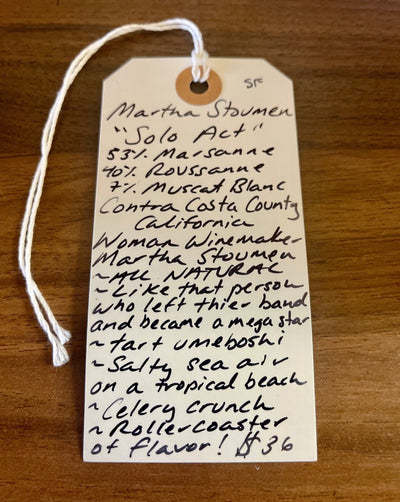 SF
Martha Stoumen
"Solo Act"
53% Marsanne
40% Roussanne
7% Muscat Blanc
Contra Costa County
California
Woman Winemaker
Martha Stoumen
~ALL NATURAL
~Like that person
who left thier band
and became a mega star
~tart umeboshi
~Salty sea air
on a tropical beach
~Celery crunch
~Rollercoaster
of flavor! $36